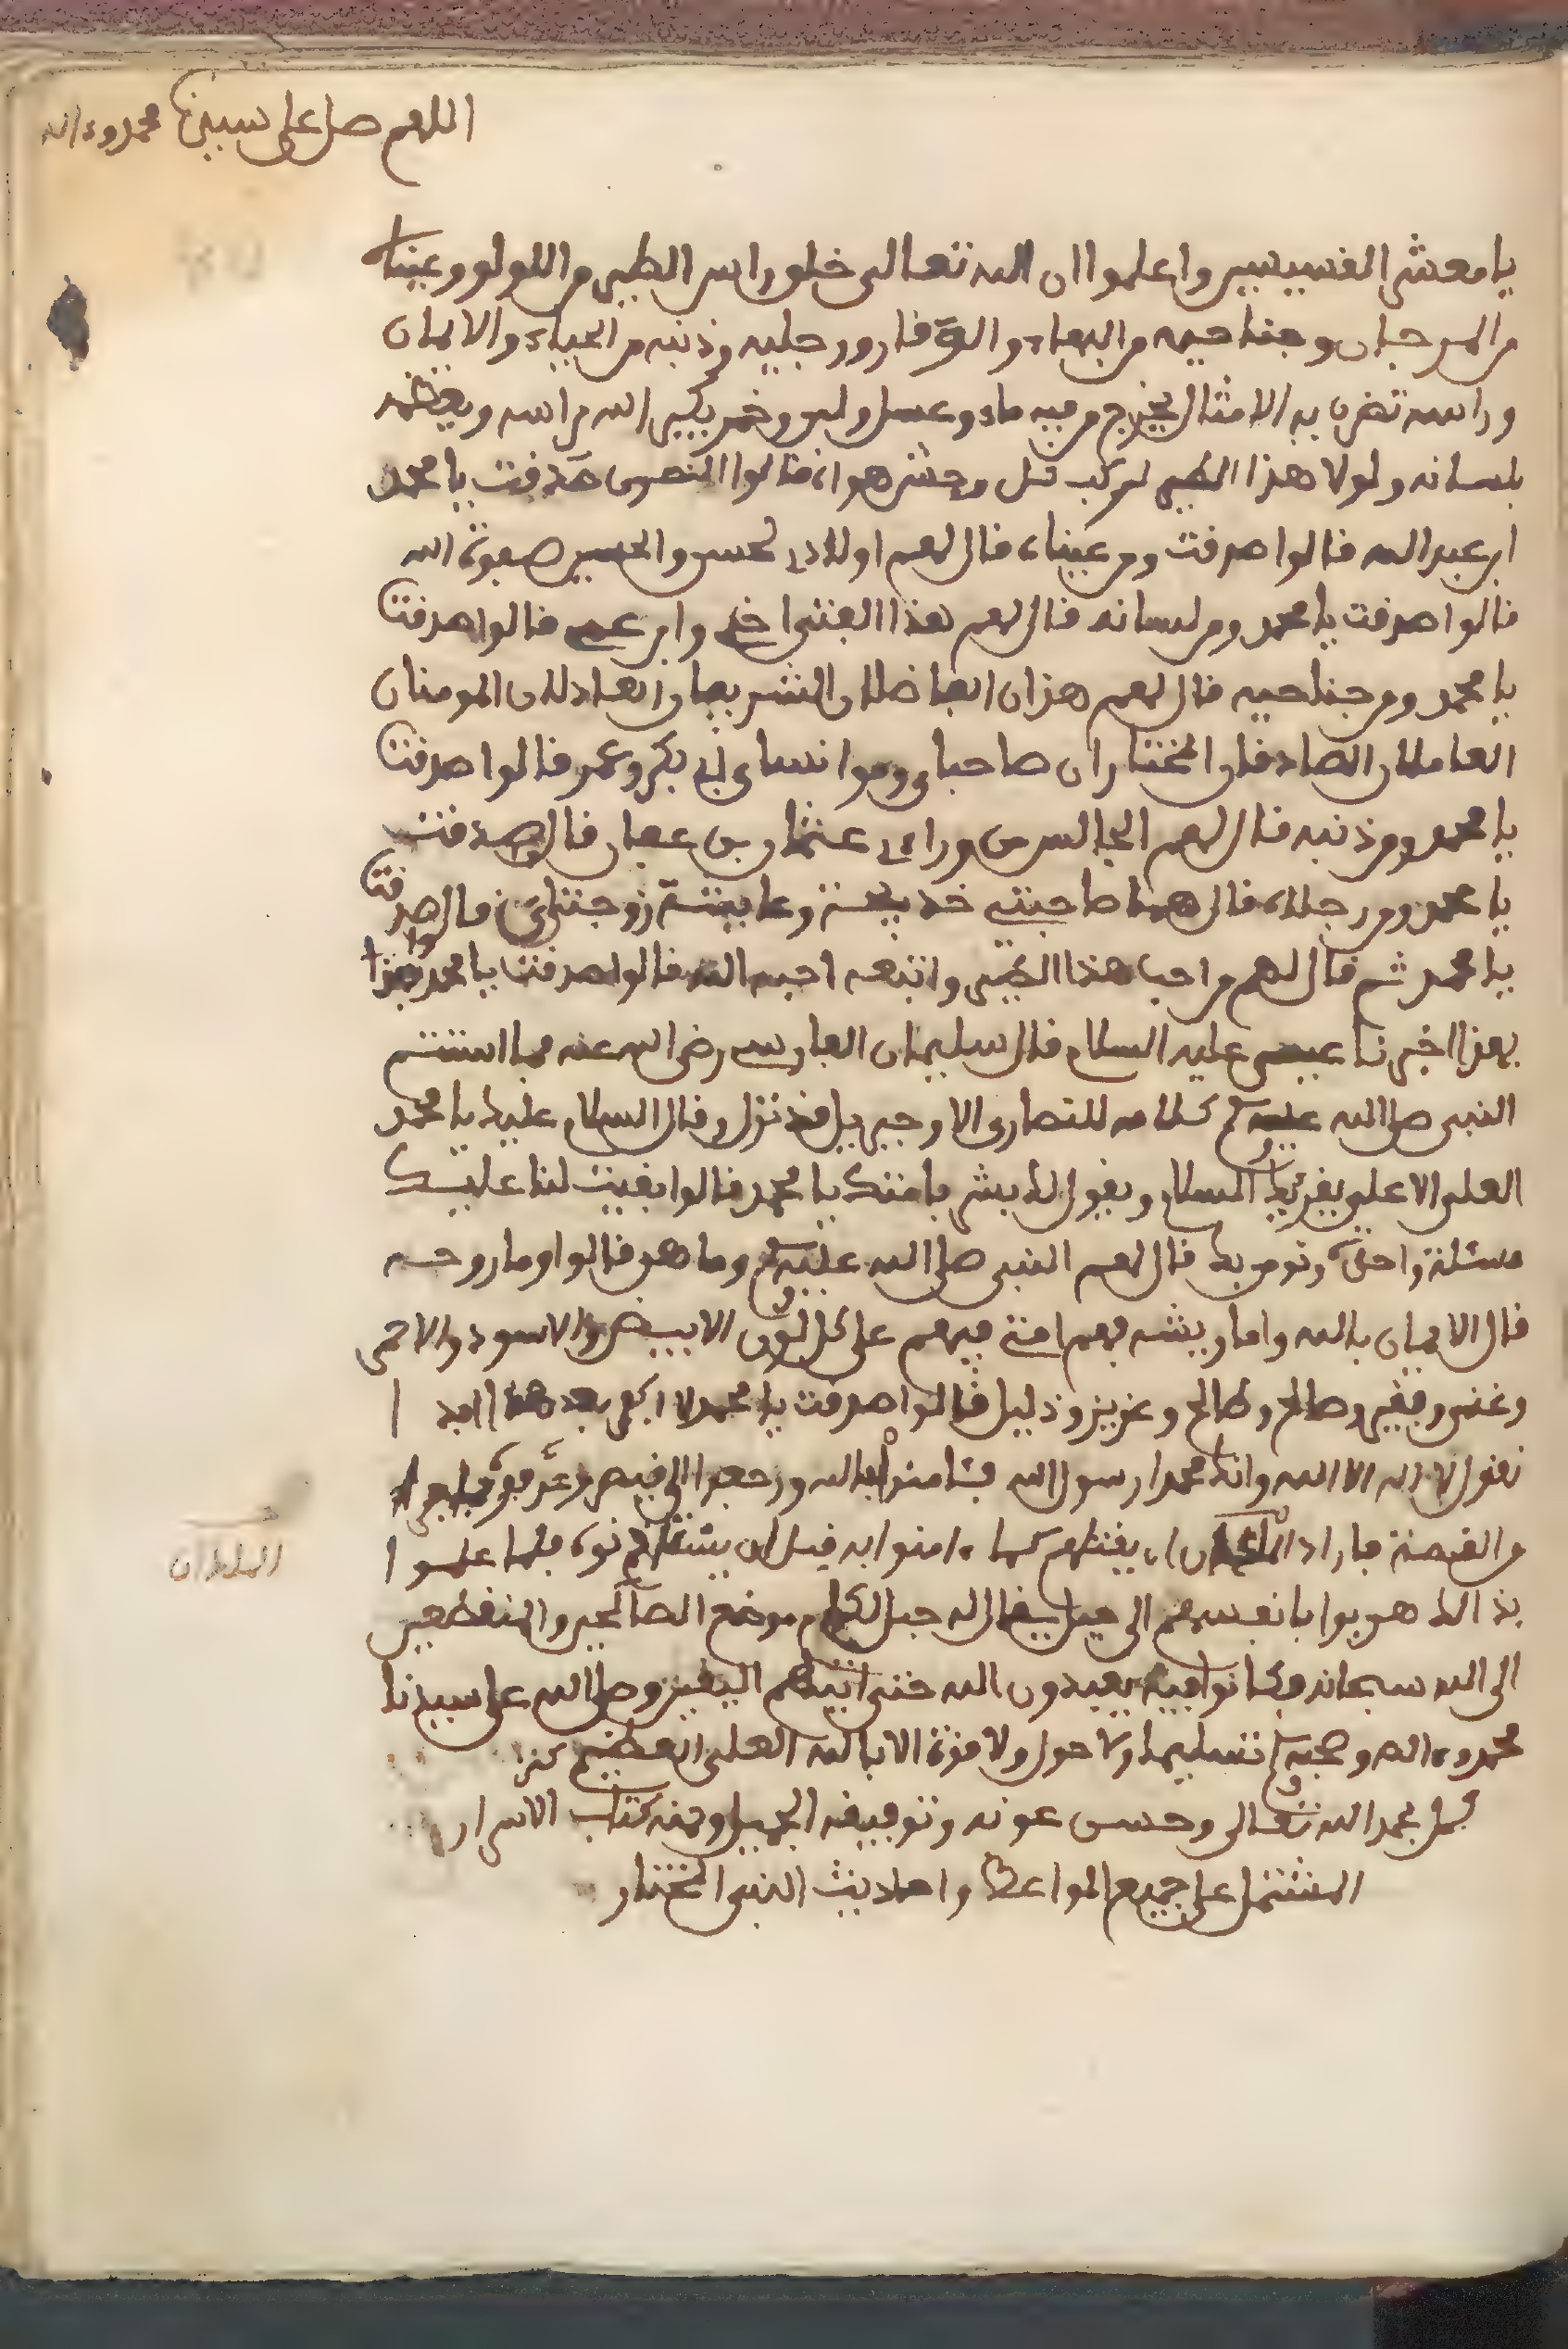 اللهم صل على سيدنا محمد وءاله
يا معشر القسيسين واعلموا ان الله تعالى خلق راس الطير من اللولو وعيناه
من المرجان وجناحيه من البهاء والوقار ورجليه وذنبه من الحياء والايمان
وراسه تضرب به الامثال يخرج من فيه ماء وعسل ولبن وخمر يكبر الله من راسه ويعظمه
بلسانه ولولا هذا الطير لم فقالوا النصرى صدقت يا محمد
ابن عبد الله قالوا صدقت ومن عيناه قال لهم اولادي الحسن والحسين صفوة الله
قالوا صدقت يا محمد ومن لسانه قال لهم هذا الفتى اخي وابن عمي قالوا صدقت
يا محمد ومن جناحيه قال لهم هذان الفاضلان الشريفان العادلان المومنان
العاملان الصادقان المختاران صاحباي وموانساي ابي بكر وعمر قالوا صدقت
يا محمد ومن ذنبه قال لهم الجالس من وراءي عثمان بن عفان قالوا صدقت
يا محمد ومن رجلاه قال هما صاحبتي خديجة وعايشة زوجتاي قالوا صدقت
يا محمد ثم قال لهم من احب هذا الطير واتبعه احبه الله قالوا صدقت يا محمد
بهذا اخبرنا عيسى عليه السلام قال سليمان الفارسي رضي الله عنه فما استتم
النبي صلى الله عليه وسلم كلامه للنصارى الا وجبريل قد نزل وقال السلام عليك يا محمد
العلي الاعلى يقريك السلام ويقول لك بشر بامتك يا محمد قالوا بقيت لنا عليك
مسئلة واحدة ونومن بك قال لهم النبي صلى الله عليه وسلم وما هو قالوا وما روحه
قال الايمان بالله واما ريشه فهم امتي فيهم على كل لون الابيض والاسود والاحمر
وغني وفقير وصالح وطالح وعزيز وذليل قالوا صدقت يا محمد لا بعد هذا ابدا
نقول لا اله الا الله وانك محمدا رسول الله فئامنوا بالله ورجعوا الى قيصر وعرفوه بما جرا
من القصة فاراد الملعون ان يقتلهم كما ءامنوا به قبل ان فلما علموا
بذالك هربوا بانفسهم الى جبل يقال له جبل موضع الصالحين والمنقطعين
الى الله سبحانه وكانوا فيه يعبدون الله حتى اتيهم اليقين وصلى الله على سيدنا
محمد وءاله وصحبه وسلم تسليما ولا حول ولا قوة الا بالله العلي العظيم
كمل بحمد الله تعالى وحسن عونه وتوفيقه الجميل ومنه كتاب الاسرار
المشتمل على جميع المواعظ واحاديث النبي المختار